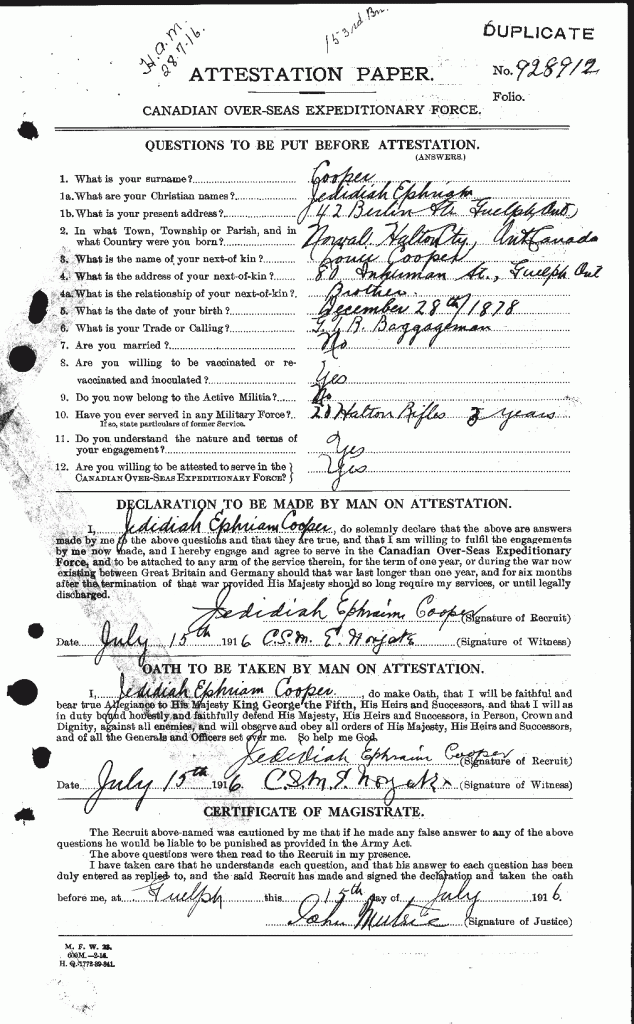 H.a.m.
28.7.16.
153rd Bn.
DUPLICATE
ATTESTATION PAPER.
No. 928912
Folio.
CANADIAN OVER-SEAS EXPEDITIONARY FORCE.
QUESTIONS TO BE PUT BEFORE ATTESTATION.
(ANSWERS.)
1. What is your surname? Cooper
1a. What are your Christian names? Jedidiah Ephriam
1b. What is your present address? 42 Berlin St. Guelph Ont
2. In what Town, Township or Parish, and in
what Country were you born? Norval. Halton Cty, Ont Canada
3. What is the name of your next-of kin? Cooper
4. What is the address of your next-of-kin? 80 St., Guelph Ont
4a. What is the relationship of your next-of-kin? Brother.
5. What is the date of your birth? December 28th/1878
6. What is your Trade or Calling? G.T.R. Baggageman
7. Are you married? No
8. Are you willing to be vaccinated or re-
vaccinated and inoculated? Yes
9. Do you now belong to the Active Militia? No
10. Have you ever served in any Military Force? 20 Halton Rifles 3 years
If so, state particulars of former Service.
11. Do you understand the nature and terms of
your engagement? Yes
12. Are you willing to be attested to serve in the
CANADIAN OVER-SEAS EXPEDITIONARY FORCE? Yes
DECLARATION TO BE MADE BY MAN ON ATTESTATION.
I, Jedidiah Ephriam Cooper, do solemnly declare that the above are answers
made by me to the above questions and that they are true, and that I am willing to fulfil the engagements
by me now made, and I hereby engage and agree to serve in the Canadian Over-Seas Expeditionary
Force, and to be attached to any arm of the service therein, for the term of one year, or during the war now
existing between Great Britain and Germany should that war last longer than one year, and for six months
after the termination of that war provided His Majesty should so long require my services, or until legally
discharged.
Jedidiah Ephraim Cooper (Signature of Recruit)
Date July 15th 1916 C.S.M. E. (Signature of Witness)
OATH TO BE TAKEN BY MAN ON ATTESTATION.
I, Jedidiah Ephriam Cooper, do make Oath, that I will be faithful and
bear true Allegiance to His Majesty King George the Fifth, His Heirs and Successors, and that I will as
in duty bound honestly and faithfully defend His Majesty, His Heirs and Successors, in Person, Crown and
Dignity, against all enemies, and will observe and obey all orders of His Majesty, His Heirs and Successors,
and of all the Generals and Officers set over me. So help me God.
Jedidiah Ephraim Cooper (Signature of Recruit)
Date July 15th 1916. C.S.M. E. (Signature of Witness)
CERTIFICATE OF MAGISTRATE.
The Recruit above-named was cautioned by me that if he made any false answer to any of the above
questions he would be liable to be punished as provided in the Army Act.
The above questions were then read to the Recruit in my presence.
I have taken care that he understands each question, and that his answer to each question has been
duly entered as replied to, and the said Recruit has made and signed the declaration and taken the oath
before me, at Guelph this 15th day of July 1916.
John (Signature of Justice)
M. F. W. 23.
600M.—2-16.
H. Q. 1772-39-841.